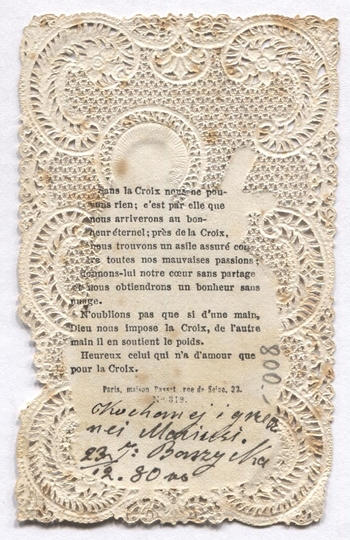 Sans la Croix nous ne pou-
vons rien; c'est par elle que
nous arriverons au bon-
heur éternel; près de la Croix,
nous trouvons un asile assuré con-
tre toutes nos mauvaises passions;
donnons-lui notre cœur sans partage
et nous obtiendrons un bonheur sans
nuage.
N'oublions pas que si d'une main,
Dieu nous impose la Croix, de l'autre
main il en soutient le poids.
Heureux celui qui n'a d'amour que
pour la Croix.
Paris, maison Basset, rue de Seine, 33.
No 319.
Kochanej
nej
23
12. 80
008